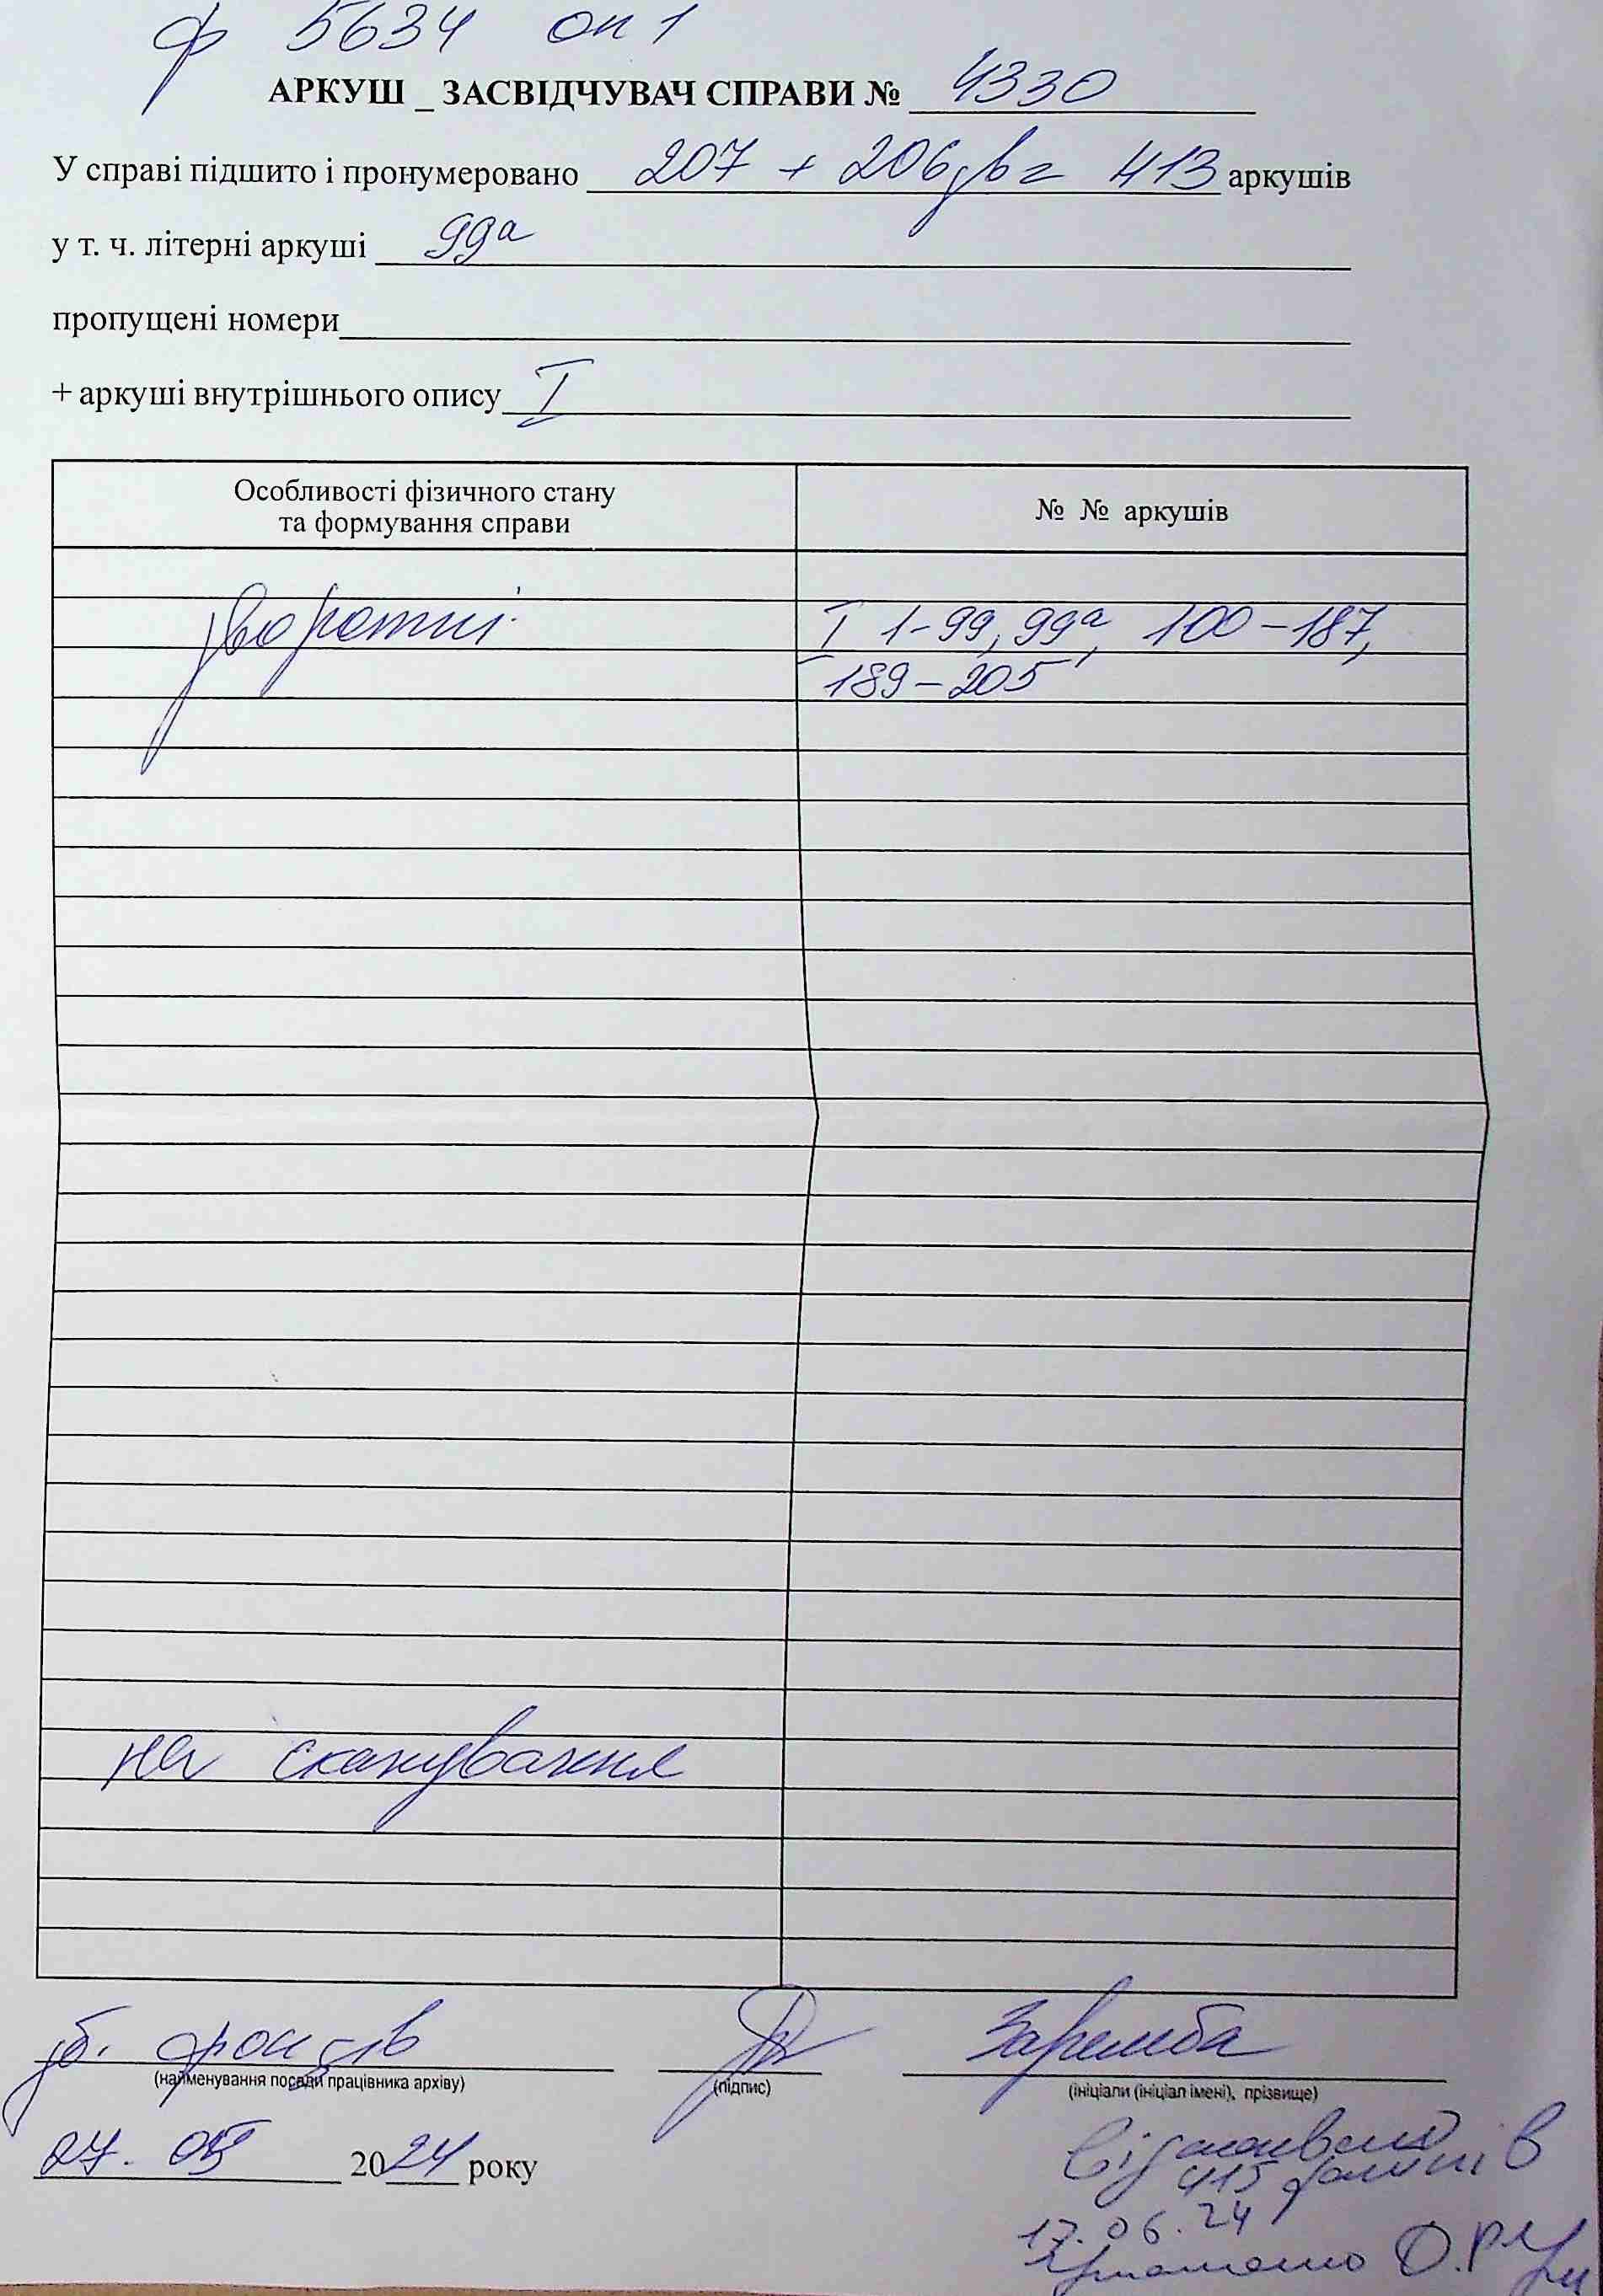 ф 5634 оп 1
АРКУШ _ ЗАСВІДЧУВАЧ СПРАВИ № 4330
У справі підшито і пронумеровано 207 + 206зв = 413 аркушів
у т. ч. літерні аркуші 99а
пропущені номери
+ аркуші внутрішнього опису I
Особливості фізичного стану
та формування справи
№ № аркушів
зворотні I 1-99, 99а, 100-187,
189-205
на сканування
зб. фондів Заремба
(найменування посади працівника архіву) (підпис) (ініціали (ініціал імені), прізвище)
27. 05 2024 року
Відскановано
415 файлів
17.06.24
О.Р.